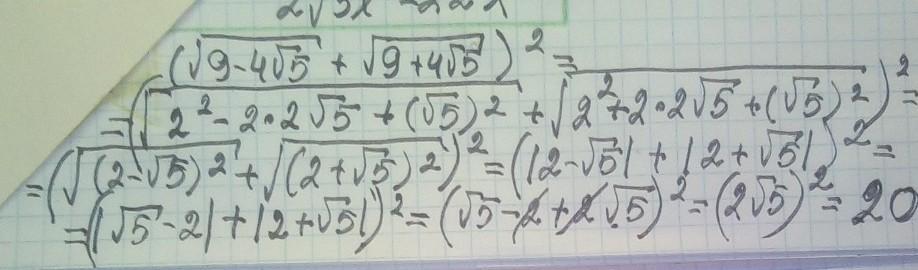 (√(9-4√5) + √(9+4√5))² =
= (√(2² - 2·2√5 + (√5)²) + √(2²+2·2√5 + (√5)²))² =
= (√((2-√5)²) + √((2+√5)²))² = (|2-√5| + |2+√5|)² =
= (|√5-2| + |2+√5|)² = (√5-2+2√5)² = (2√5)² = 20